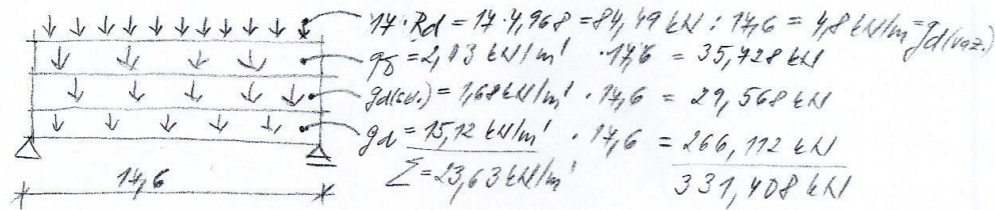 17·Rd = 17·4,968 = 84,49 kN : 17,6 = 4,8 kN/m = gd(vaz.)
= 2,03 kN/m' ·17,6 = 35,728 kN
gd = 1,68 kN/m' · 17,6 = 29,568 kN
gd = 15,12 kN/m' · 17,6 = 266,112 kN
Σ = 23,63 kN/m' 331,408 kN
17,6